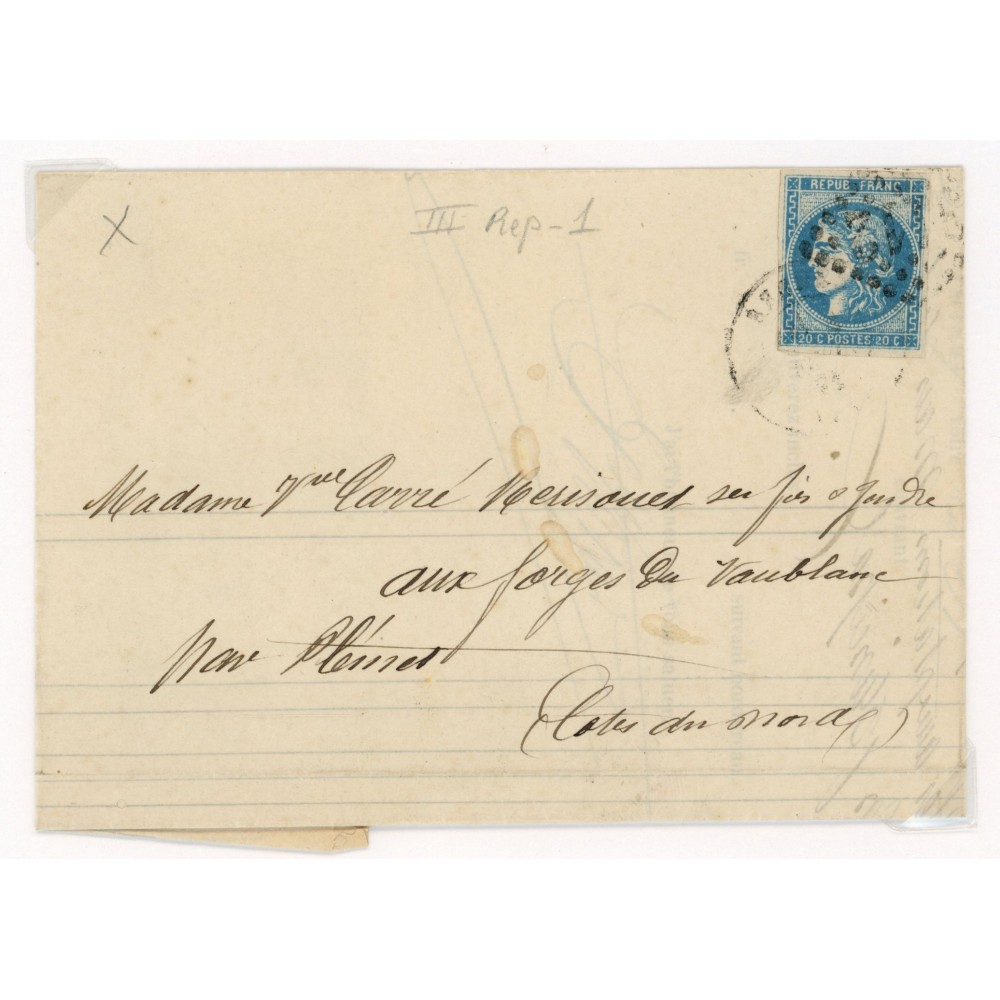 X
III Rep-1
REPUB FRANC
20 C POSTES 20 C
Madame Vve Carré Kerisouet
aux forges du Vaublanc
par Plémet
(Cotes du nord)